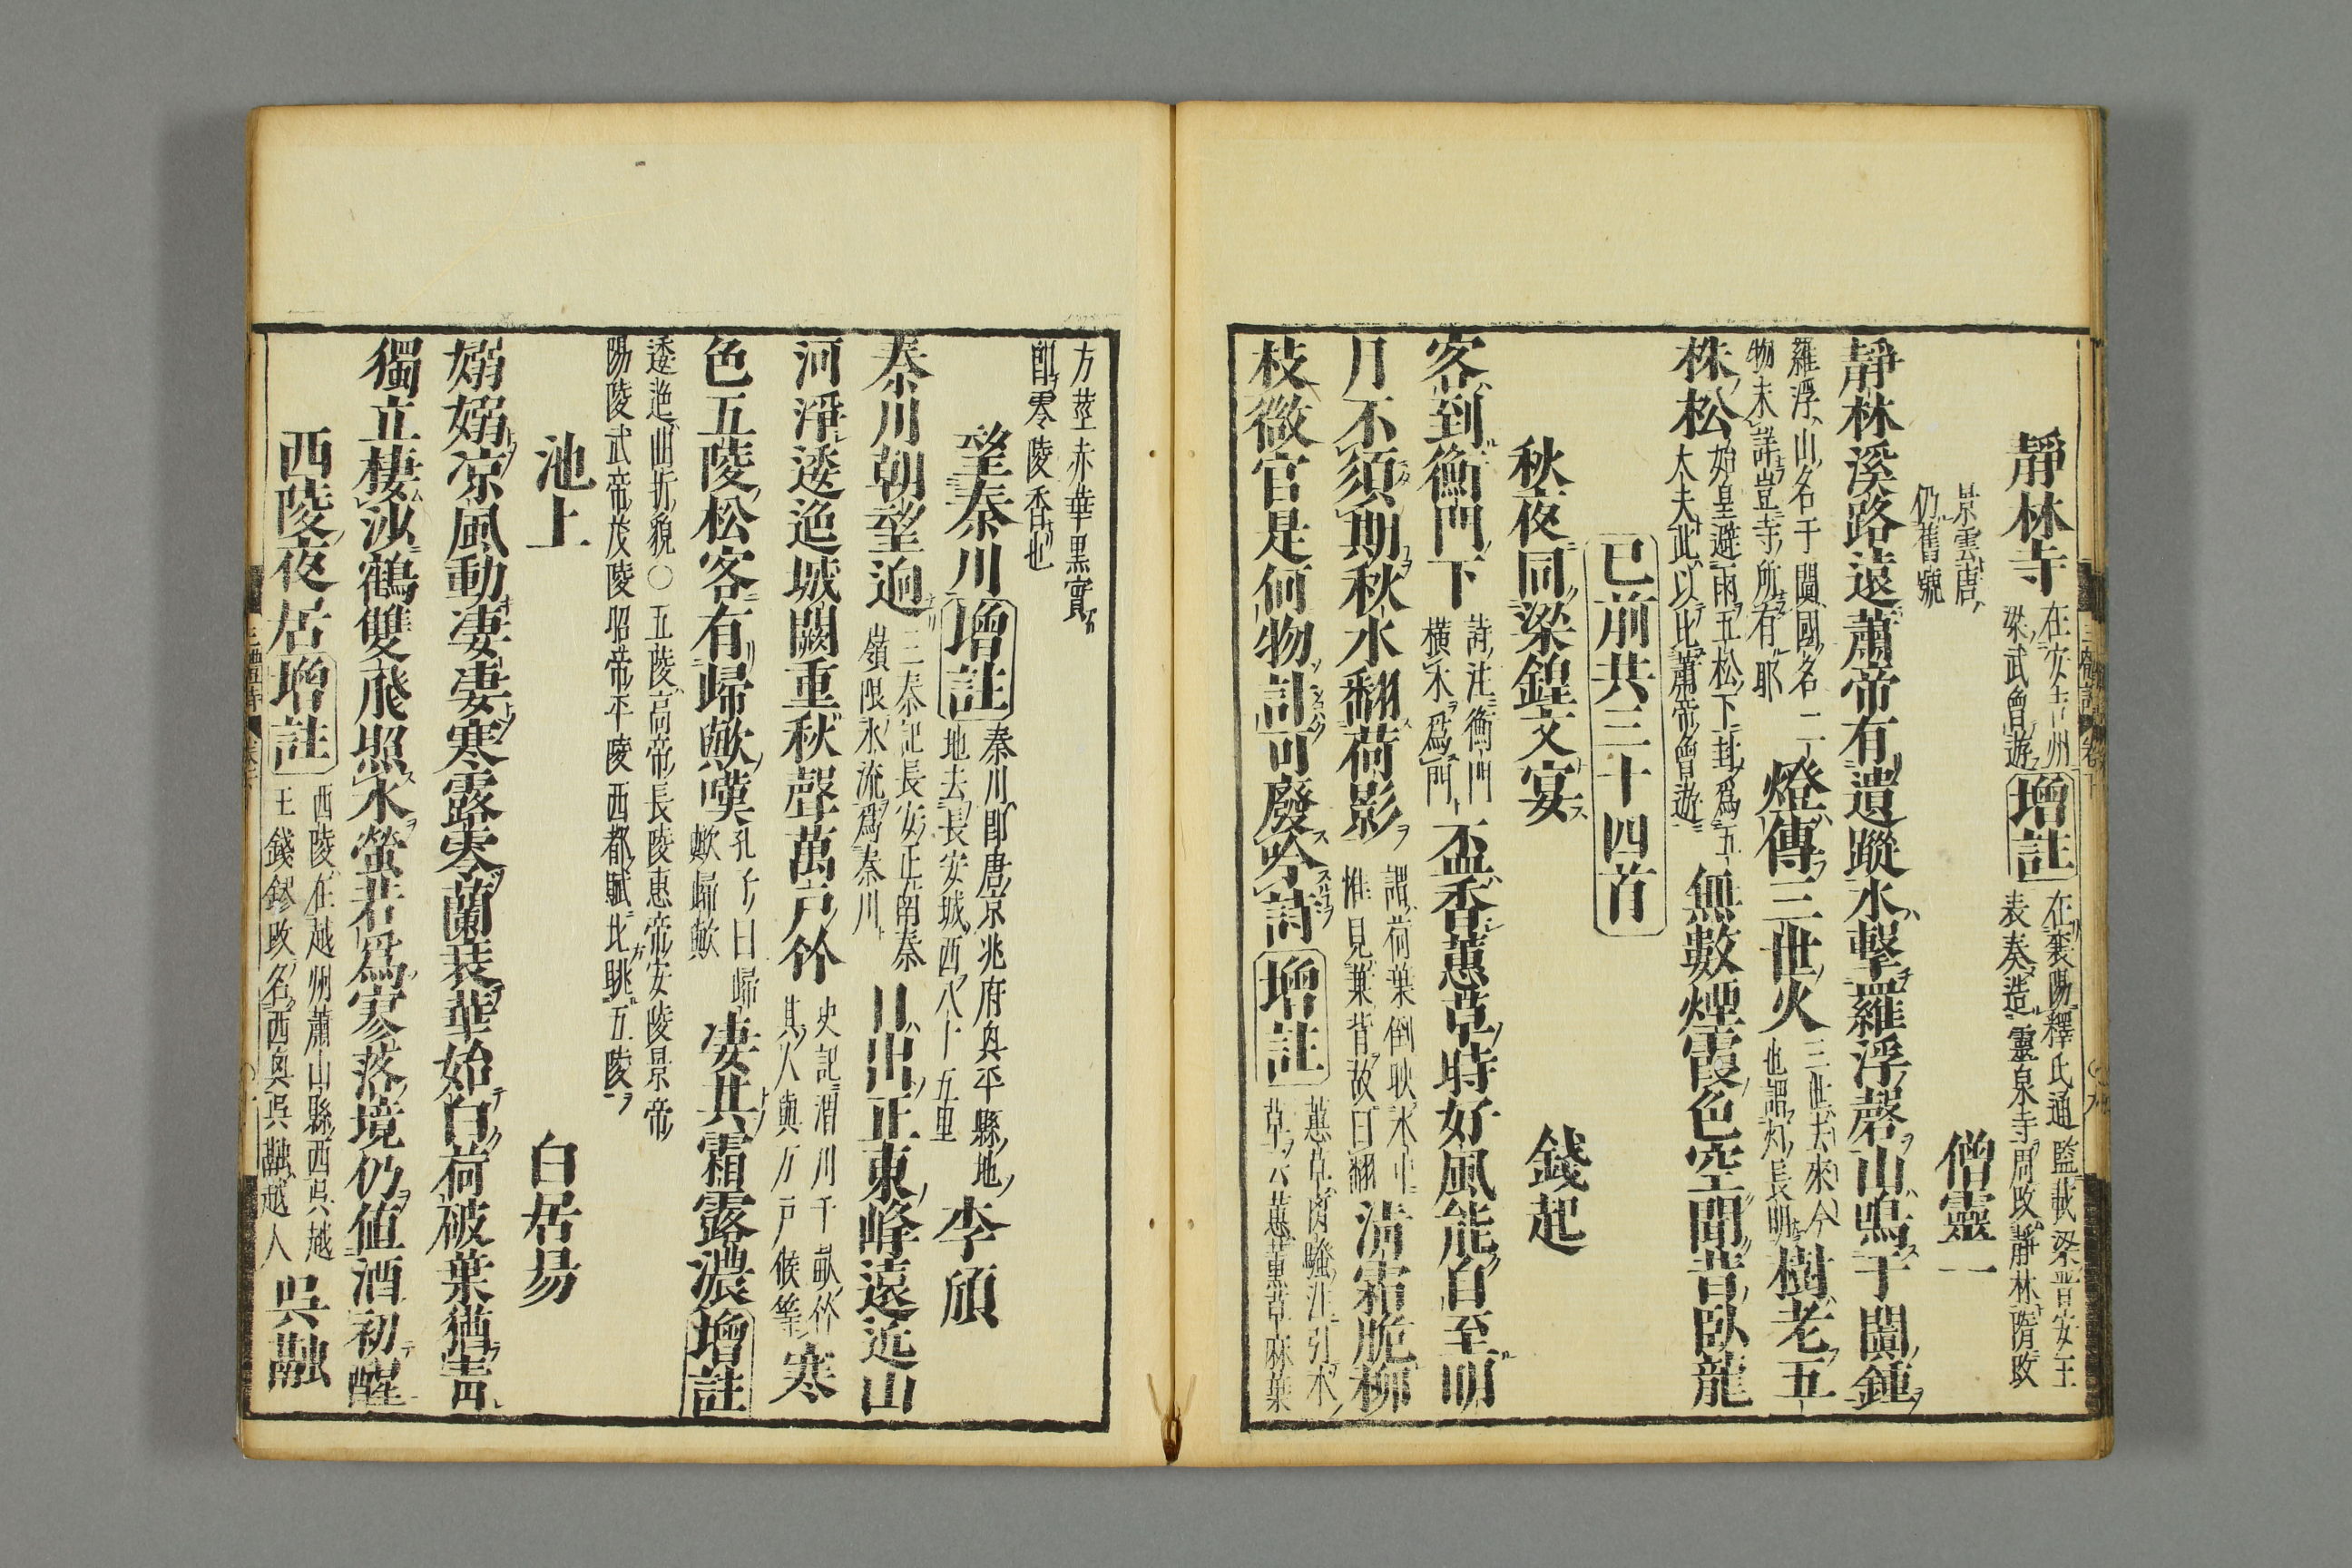 靜林寺 在安吉州 梁武曾遊 增註 在襄陽釋氏通監載梁晋安王 表奏造靈泉寺周改靜林隋改
景雲唐 仍舊號 僧靈一
靜林溪路遠蕭帝有遺蹤水擊羅浮磬山鳴于闐鍾
羅浮山名于闐國名二 物未詳豈寺所有耶 燈傳三世火 三世去來今 也謂灯長明 樹老五
株松 始皇避雨五松下封爲五 大夫此以比蕭帝曾遊 無數煙霞色空聞昔臥龍
已前共三十四首
秋夜同梁鍠文宴 錢起
客到衡門下 詩注衡門 橫木爲門 盃香蕙草時好風能自至明
月不須期秋水翻荷影 謂荷葉倒映水中 惟見葉背故曰翻 淸霜脆柳
枝微官是何物許可廢吟詩 增註 蕙草离騷注引本 草云蕙薰草麻葉
方莖赤華黑實 卽零陵香也
望秦川 增註 秦川卽唐京兆府奥平縣地 地去長安城西八十五里 李頎
秦川朝望逈 三秦記長安正南秦 嶺限水流爲秦川 日出正東峰遠近山
河淨逶迤城闕重秋聲萬戶竹 史記渭川千畝竹 其人與万戶候等 寒
色五陵松客有歸歟嘆 孔子曰歸 歟歸歟 凄其霜露濃 增註
逶迤曲折貌○五陵高帝長陵惠帝安陵景帝 陽陵武帝茂陵昭帝平陵西都賦北眺五陵
池上 白居易
嫋嫋凉風動凄凄寒露零蘭衰華始白荷破葉猶靑
獨立棲沙鶴雙飛照水螢若爲寥落境仍値酒初醒
西陵夜居 增註 西陵在越州蕭山縣西吳越 王錢鏐改名西奥吳融越人 吳融